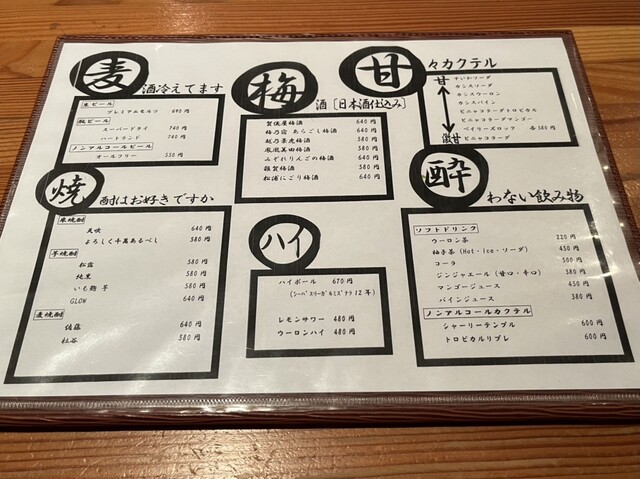 麦酒冷えてます
生ビール
プレミアムモルツ 690円
瓶ビール
スーパードライ 740円
ハートランド 740円
ノンアルコールビール
オールフリー 550円
梅酒［日本酒仕込み］
賀儀屋梅酒 640円
梅乃宿 あらごし梅酒 640円
越乃景虎梅酒 580円
鳳凰美田梅酒 580円
みぞれりんごの梅酒 640円
雑賀梅酒 580円
松浦にごり梅酒 640円
甘々カクテル
甘
微甘
すいかソーダ
カシスソーダ
カシスウーロン
カシスパイン
ピニャコラーダトロピカル
ピニャコラーダマンゴー
ベイリーズロック 各580円
ピニャコラーダ
焼酎はお好きですか
米焼酎
天吹 640円
よろしく千萬あるべし 580円
芋焼酎
松露 580円
純黒 580円
いも麹 芋 580円
GLOW 640円
麦焼酎
佐藤 640円
杜谷 580円
ハイ
ハイボール 670円
レモンサワー 480円
ウーロンハイ 480円
酔わない飲み物
ソフトドリンク
ウーロン茶 220円
柚子茶（Hot・ice・ソーダ） 450円
コーラ 300円
ジンジャエール（甘口・辛口） 380円
マンゴージュース 450円
パインジュース 380円
ノンアルコールカクテル
シャーリーテンプル 600円
トロピカルリプレ 600円